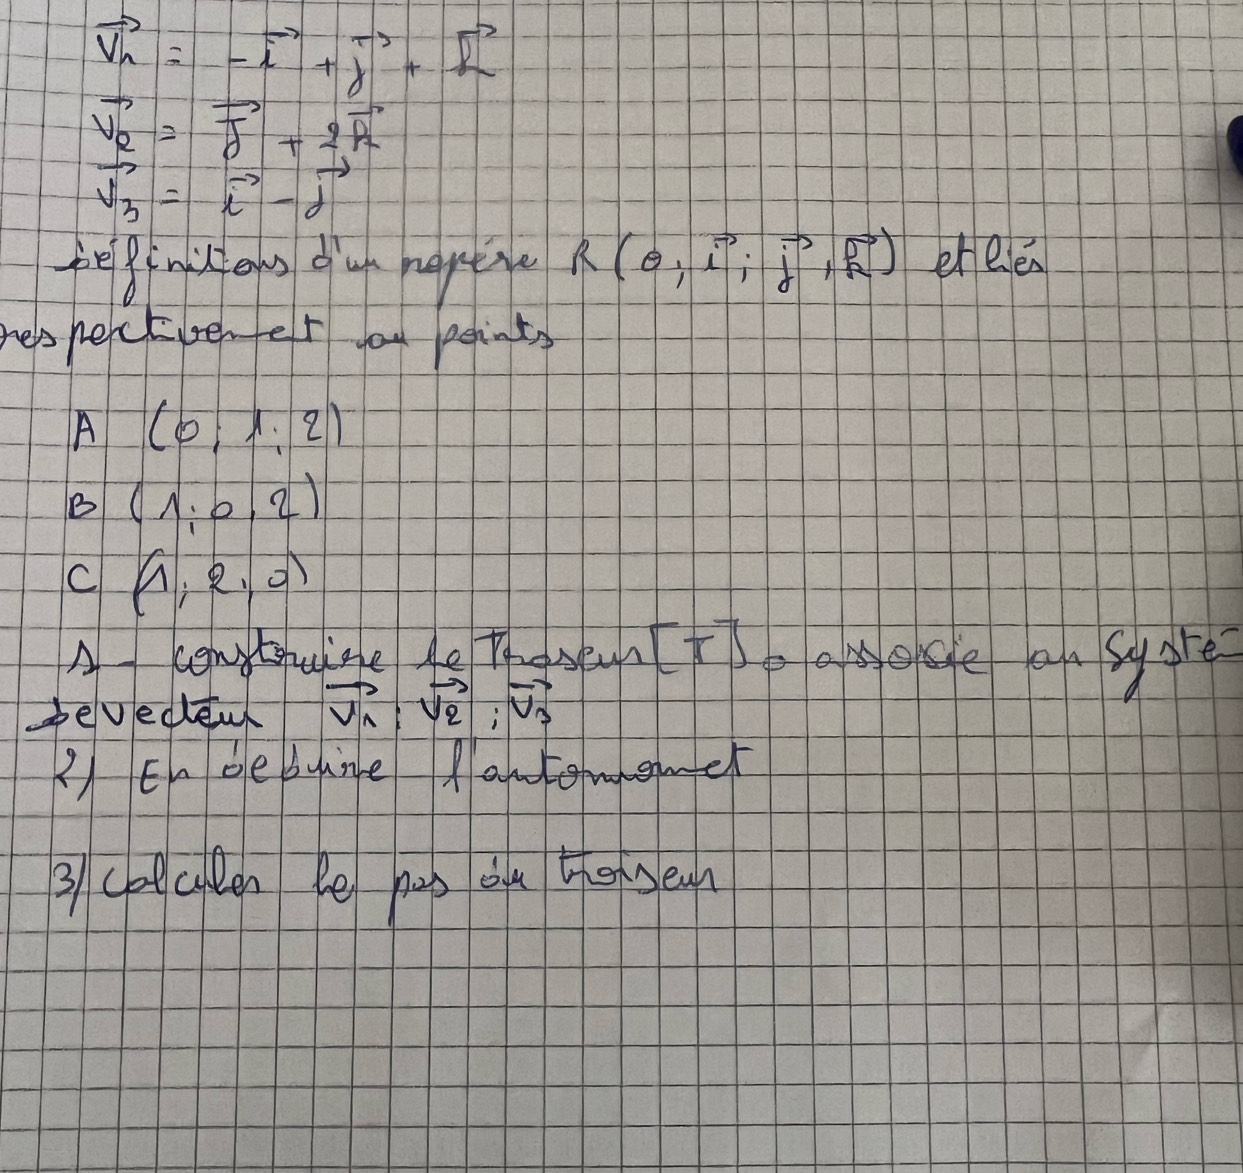 V₁ = -i + j + k
V₂ = j + 2k
V₃ = i - j
définitions d'un repère R (o, i; j, k) et liés
respectivement au points
A (0; 1; 2)
B (1; 0, 2)
C (1; 2; 0)
1 - construire le Torseur [T]₀ associé au système
de vecteur V₁; V₂; V₃
2) En déduire l'automoment
3/ calculer le pas du torseur